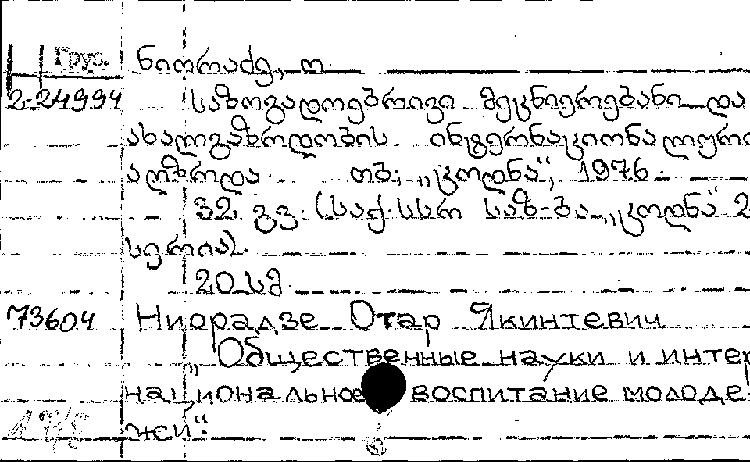 Груз. ნიორაძე, ო.
2-24994 საზოგადოებრივი მეცნიერებანი და
ახალგაზრდობის ინტერნაციონალური
აღზრდა თბ., „ცოდნა“, 1976.
32 გვ. (საქ. სსრ საზ-ბა „ცოდნა“ 2
სერია).
20 სმ
73604 Ниорадзе Отар Якинтевич
„Общественные науки и интер
национальное воспитание молоде-
жи“.